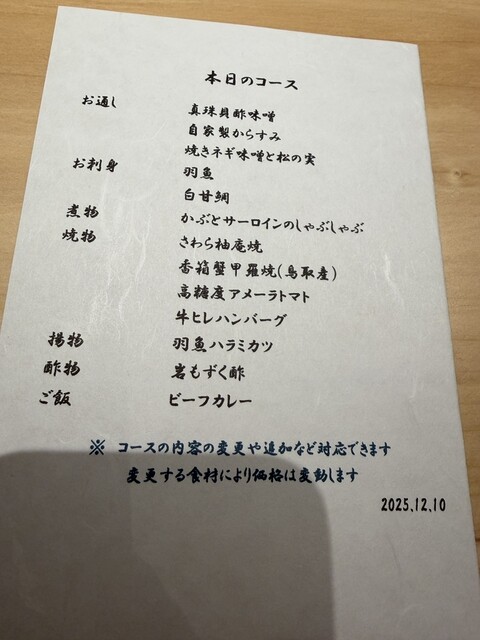 本日のコース
お通し 真珠貝酢味噌
自家製からすみ
焼きネギ味噌と松の実
お刺身 羽魚
白甘鯛
煮物 かぶとサーロインのしゃぶしゃぶ
焼物 さわら柚庵焼
香箱蟹甲羅焼(鳥取産)
高糖度アメーラトマト
牛ヒレハンバーグ
揚物 羽魚ハラミカツ
酢物 岩もずく酢
ご飯 ビーフカレー
※ コースの内容の変更や追加など対応できます
変更する食材により価格は変動します
2025.12.10